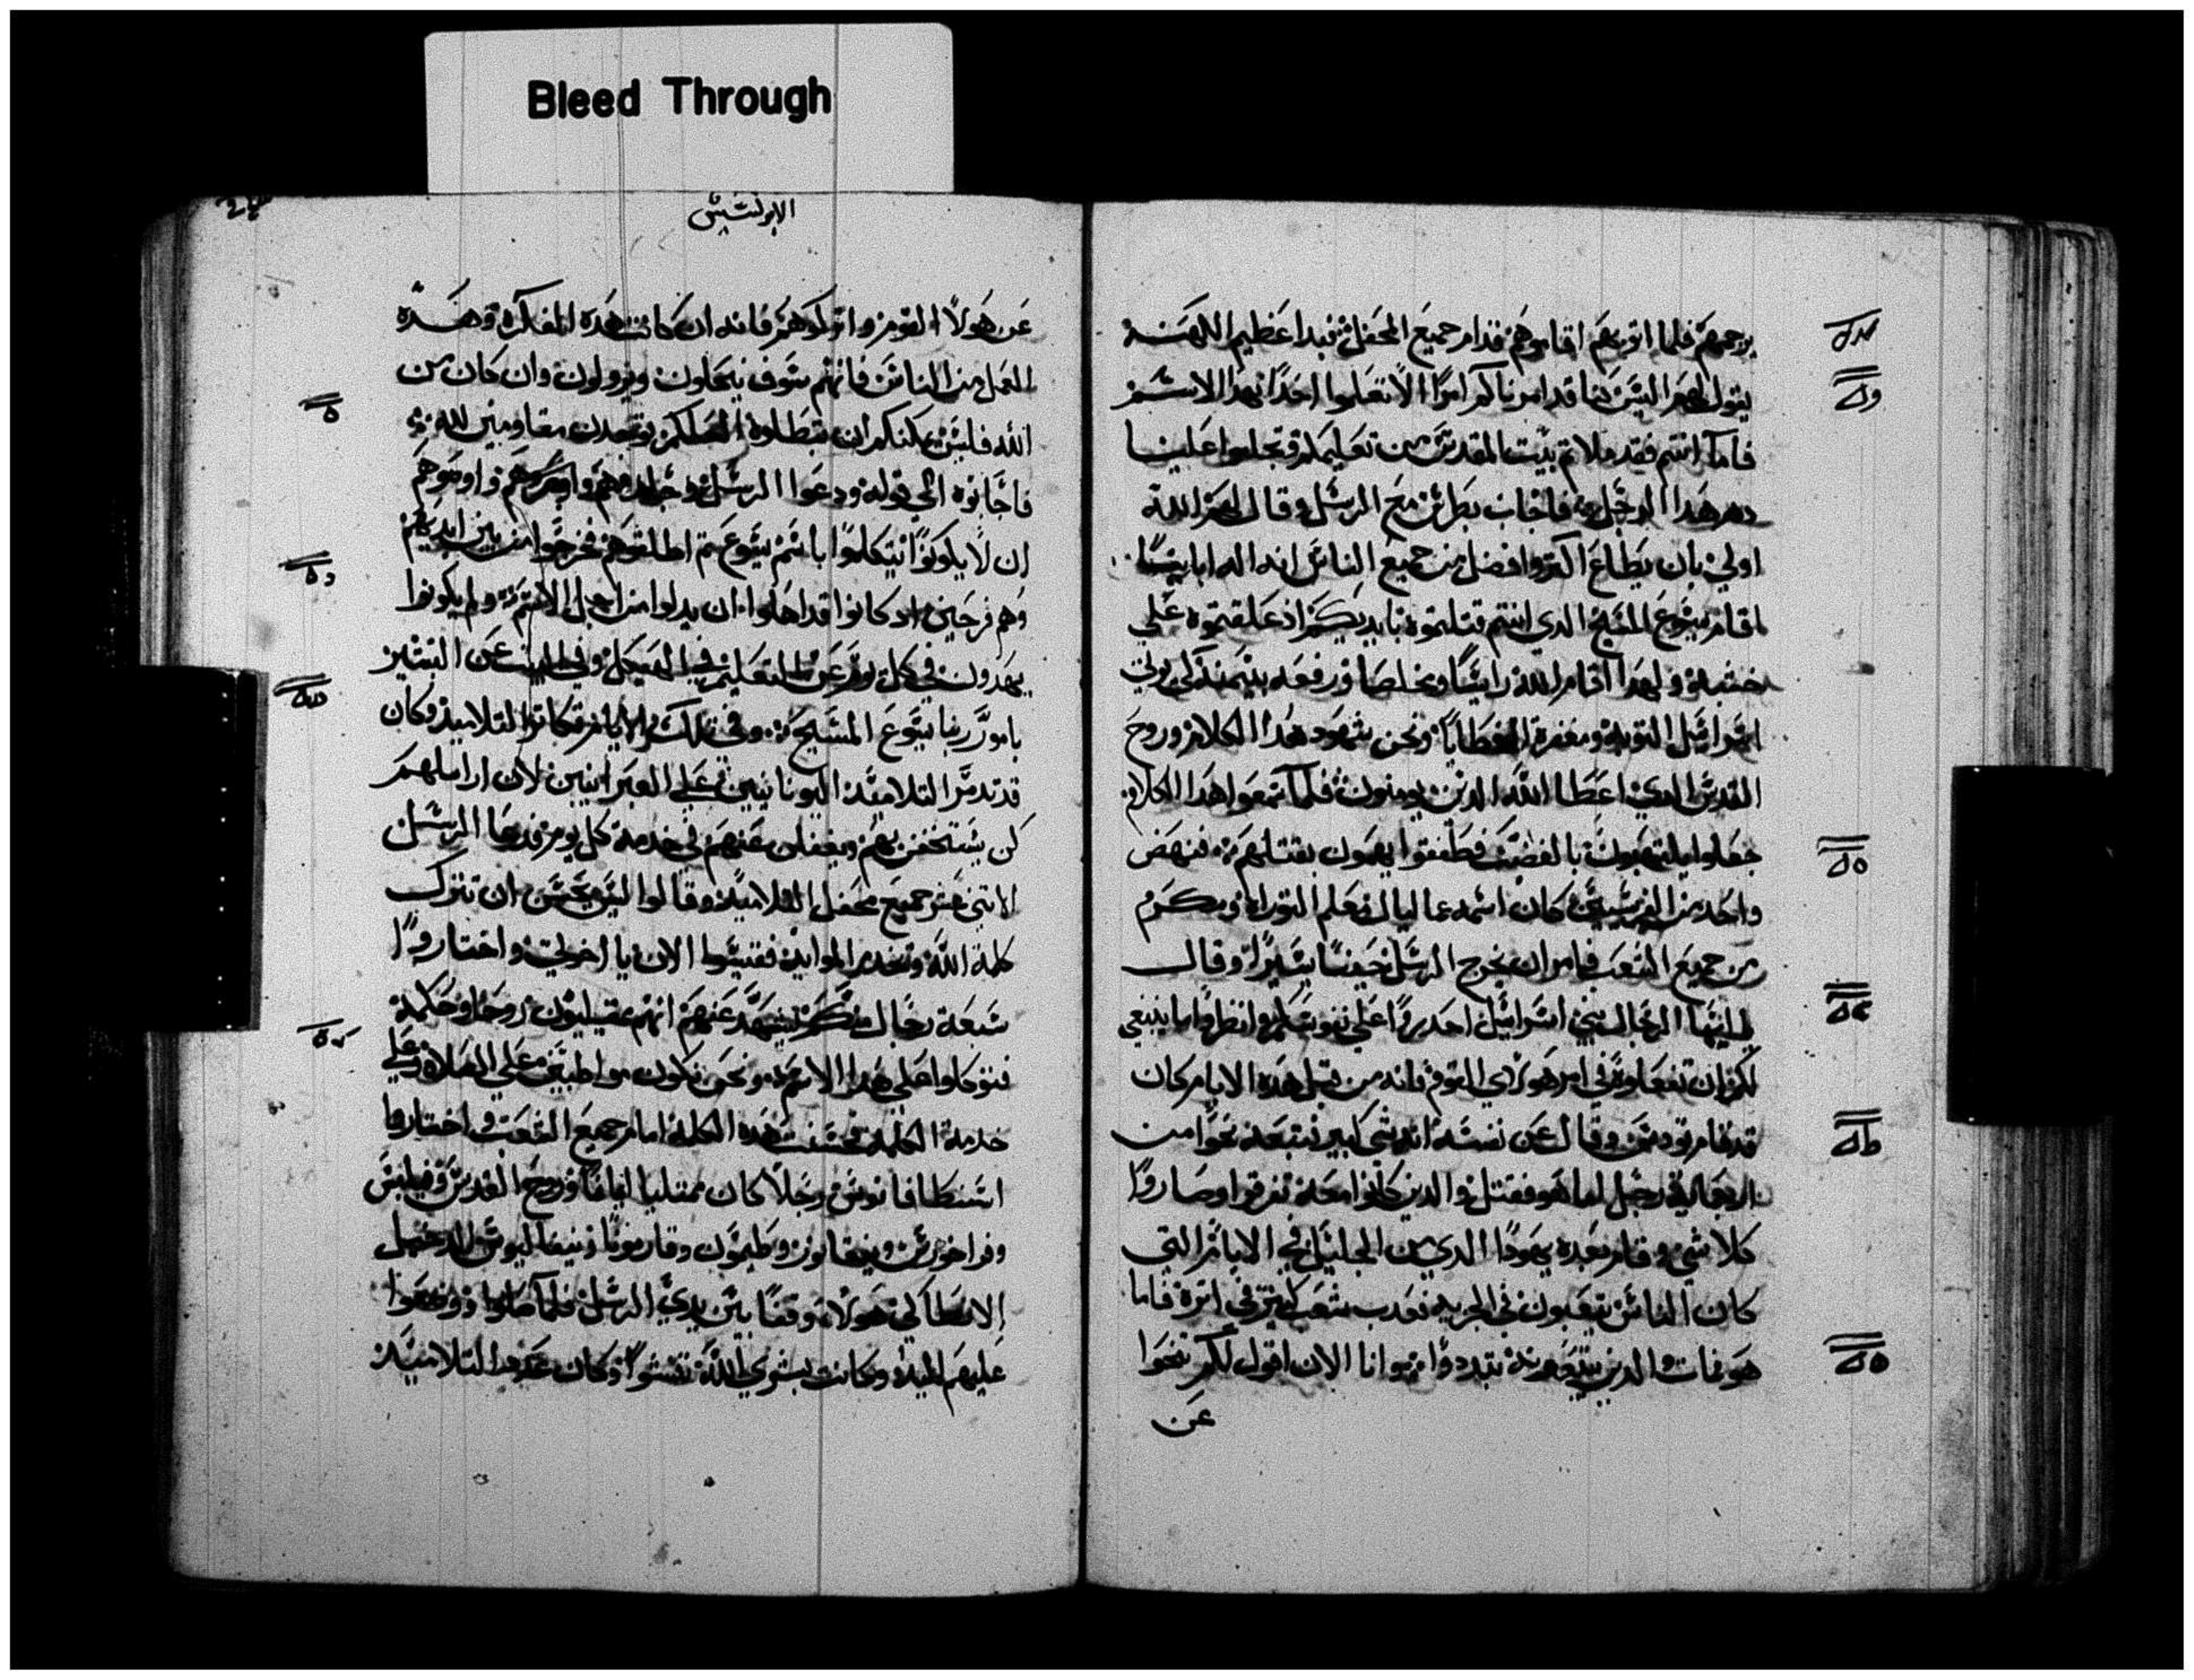 Bleed Through
يرجموهم فلما اتوا بهم اقاموهم قدام جميع المحفل فبدا عظيم الكهنة
يقول لهم اليس كنا قد امرناكم امرًا الا تعلموا احدًا بهذا الاسم
فاما انتم فقد ملاتم بيت المقدس من تعليمكم وتجلبوا علينا
دم هذا الرجل فاجاب بطرس مع الرسل وقال لهم الله
اولي بان يطاع اكتر وافضل من جميع الناس انه اله اباينا
اقام يسوع المسيح الدي انتم قتلتموه بايديكم اذ علقتموه علي
خشبة ولهدا اقام الله راسًا ومخلصا ورفعه بيمينه لكي يوتي
اسراييل التوبة ومغفرة الخطايا ونحن شهود هدا الكلام وروح
القدس الدي اعطا الله الدين يومنون فلما سمعوا هدا الكلام
جعلوا يلتهبون بالغضب فطفقوا يهمون بقتلهم فنهض
واحد من الفريسيين كان اسمه عماليال معلم التوراة ومكرم
من جميع الشعب فامر ان يخرج الرسل حينًا يسيرًا وقال
يا ايها الرجال بني اسراييل احدروا علي نفوسكم وانظروا ما ينبغي
لكم ان تفعلوه في امر هولاي القوم فانه من قبل هده الايام كان
قد قام تودس وقال عن نفسه انه شي كبير فتبعه نحوًا من
اربعماية رجل اما هو فقتل والدين كانوا معه تفرقوا وصاروا
كلا شي وقام بعده يهودا الدي من الجليل في الايام التي
كان الناس يكتبون في الجزية فعدب شعب كتير في اتره فاما
هو فمات والدين يتبعونه تبددوا وانا الان اقول لكم تنحوا
عن
الابركسيس
عن هولا القوم واتركوهم فانه ان كانت هده الفكرة وهده
العمل من الناس فانهم سوف ينحلون ويزولون وان كان من
الله فليس يمكنكم ان تبطلوه لعلكم توجدون مقاومين لله
فاجابوه الي قوله ودعوا الرسل وجلدوهم وامروهم واوصوهم
ان لا يكونوا يتكلموا باسم يسوع تم اطلقوهم فخرجوا من بين ايديهم
وهم فرحين اد كانوا قد اهلوا ان يدلوا من اجل الاسم ولم يكونوا
يهدون في كل يوم عن التعليم في الهيكل وفي البيت عن التبشير
بامور ربنا يسوع المسيح وفي تلك الايام كانوا التلاميد وكان
قد تدمر التلاميد اليونانيين علي العبرانيين لان اراملهم
كن يستخفن بهم ويغفلن عنهم في خدمة كل يوم فدعا الرسل
الاتني عشر جميع محفل التلاميد وقالوا ليس يحسن ان نترك
كلمة الله ونخدم الموايد ففتشوا الان يا اخوتي واختاروا
سبعة رجال منكم يشهد عنهم انهم ممتليون روحا وحكمة
فنوكلوا علي هدا الامر ونحن نكون مواظبين علي الصلاة وعلي
خدمة الكلمة فحسنت هده الكلمة امام جميع الشعب واختاروا
اسطافانوس رجلًا كان ممتليا ايمانًا وروح القدس وفيلبس
وفراخورس ونيقانور وطيمون وقارمونا ونيقالاوس الدخيل
الانطاكي هولا وقفًا بين يدي الرسل فلما صلوا ووضعوا
عليهم اليد وكانت بشري الله تنشوا وكان عدد التلاميد